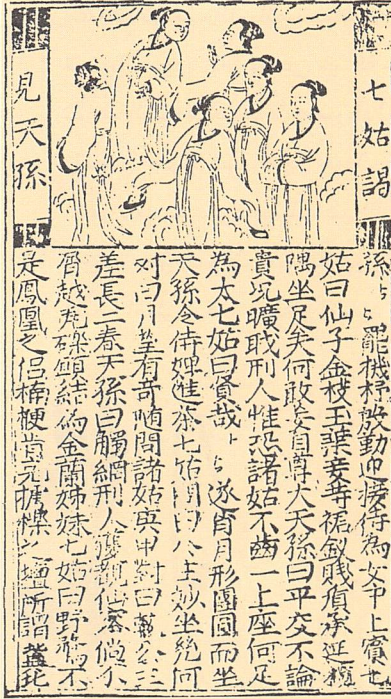 七姑謁
見天孫
孫〻〻罷機杼啟動迎接侍為女中上賓七
姑曰仙子金枝玉葉妾等裙釵賤質承延
隅坐足矣何敢妄自尊大天孫曰平交不論
貴况曠職刑人惟恐諸姑不齒一上座何足
為太七姑曰賢哉〻〻遂肖月形團圓而坐
天孫令侍婢進茶七姑問曰公主妙坐幾何
对曰月有奇随問諸姑與甲對曰三
差長二春天孫曰觸網刑人獲仙客倘不
屑越礫結為金蘭姊妹七姑曰野鶩不
是鳳凰之侣楠梗肯樗櫟之壇所謂